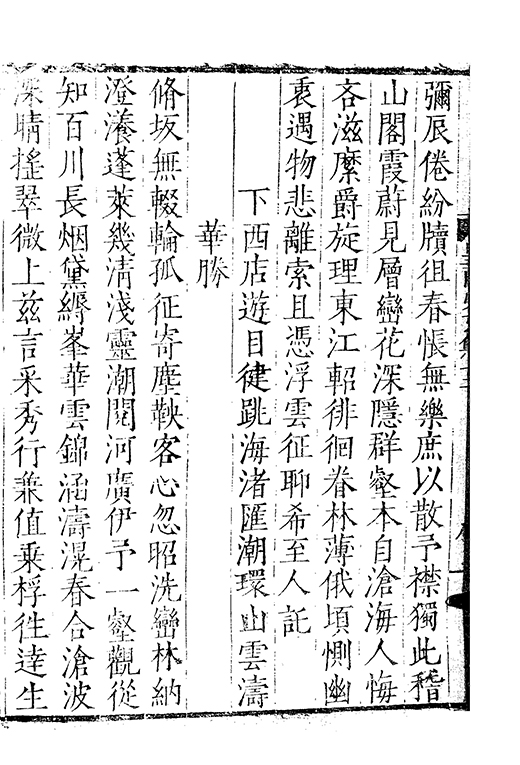 彌辰倦紛牘徂春悵無樂庶以散予襟獨此稽
山閣霞蔚見層巒花深隱群壑本自滄海人悔
吝滋縻爵旋理東江軺徘徊眷林薄俄頃惻幽
衷遇物悲離索且憑浮雲征聊希至人託
下西店遊目徤跳海渚匯潮環山雲濤
華勝
脩坂無輟輪孤征寄塵鞅客心忽昭洗巒林納
澄瀁蓬萊幾清淺靈潮閱河廣伊予一壑觀從
知百川長烟黛縟峯華雲錦涵濤滉春合滄波
深晴搖翠微上兹言采秀行兼值乗桴徃逹生